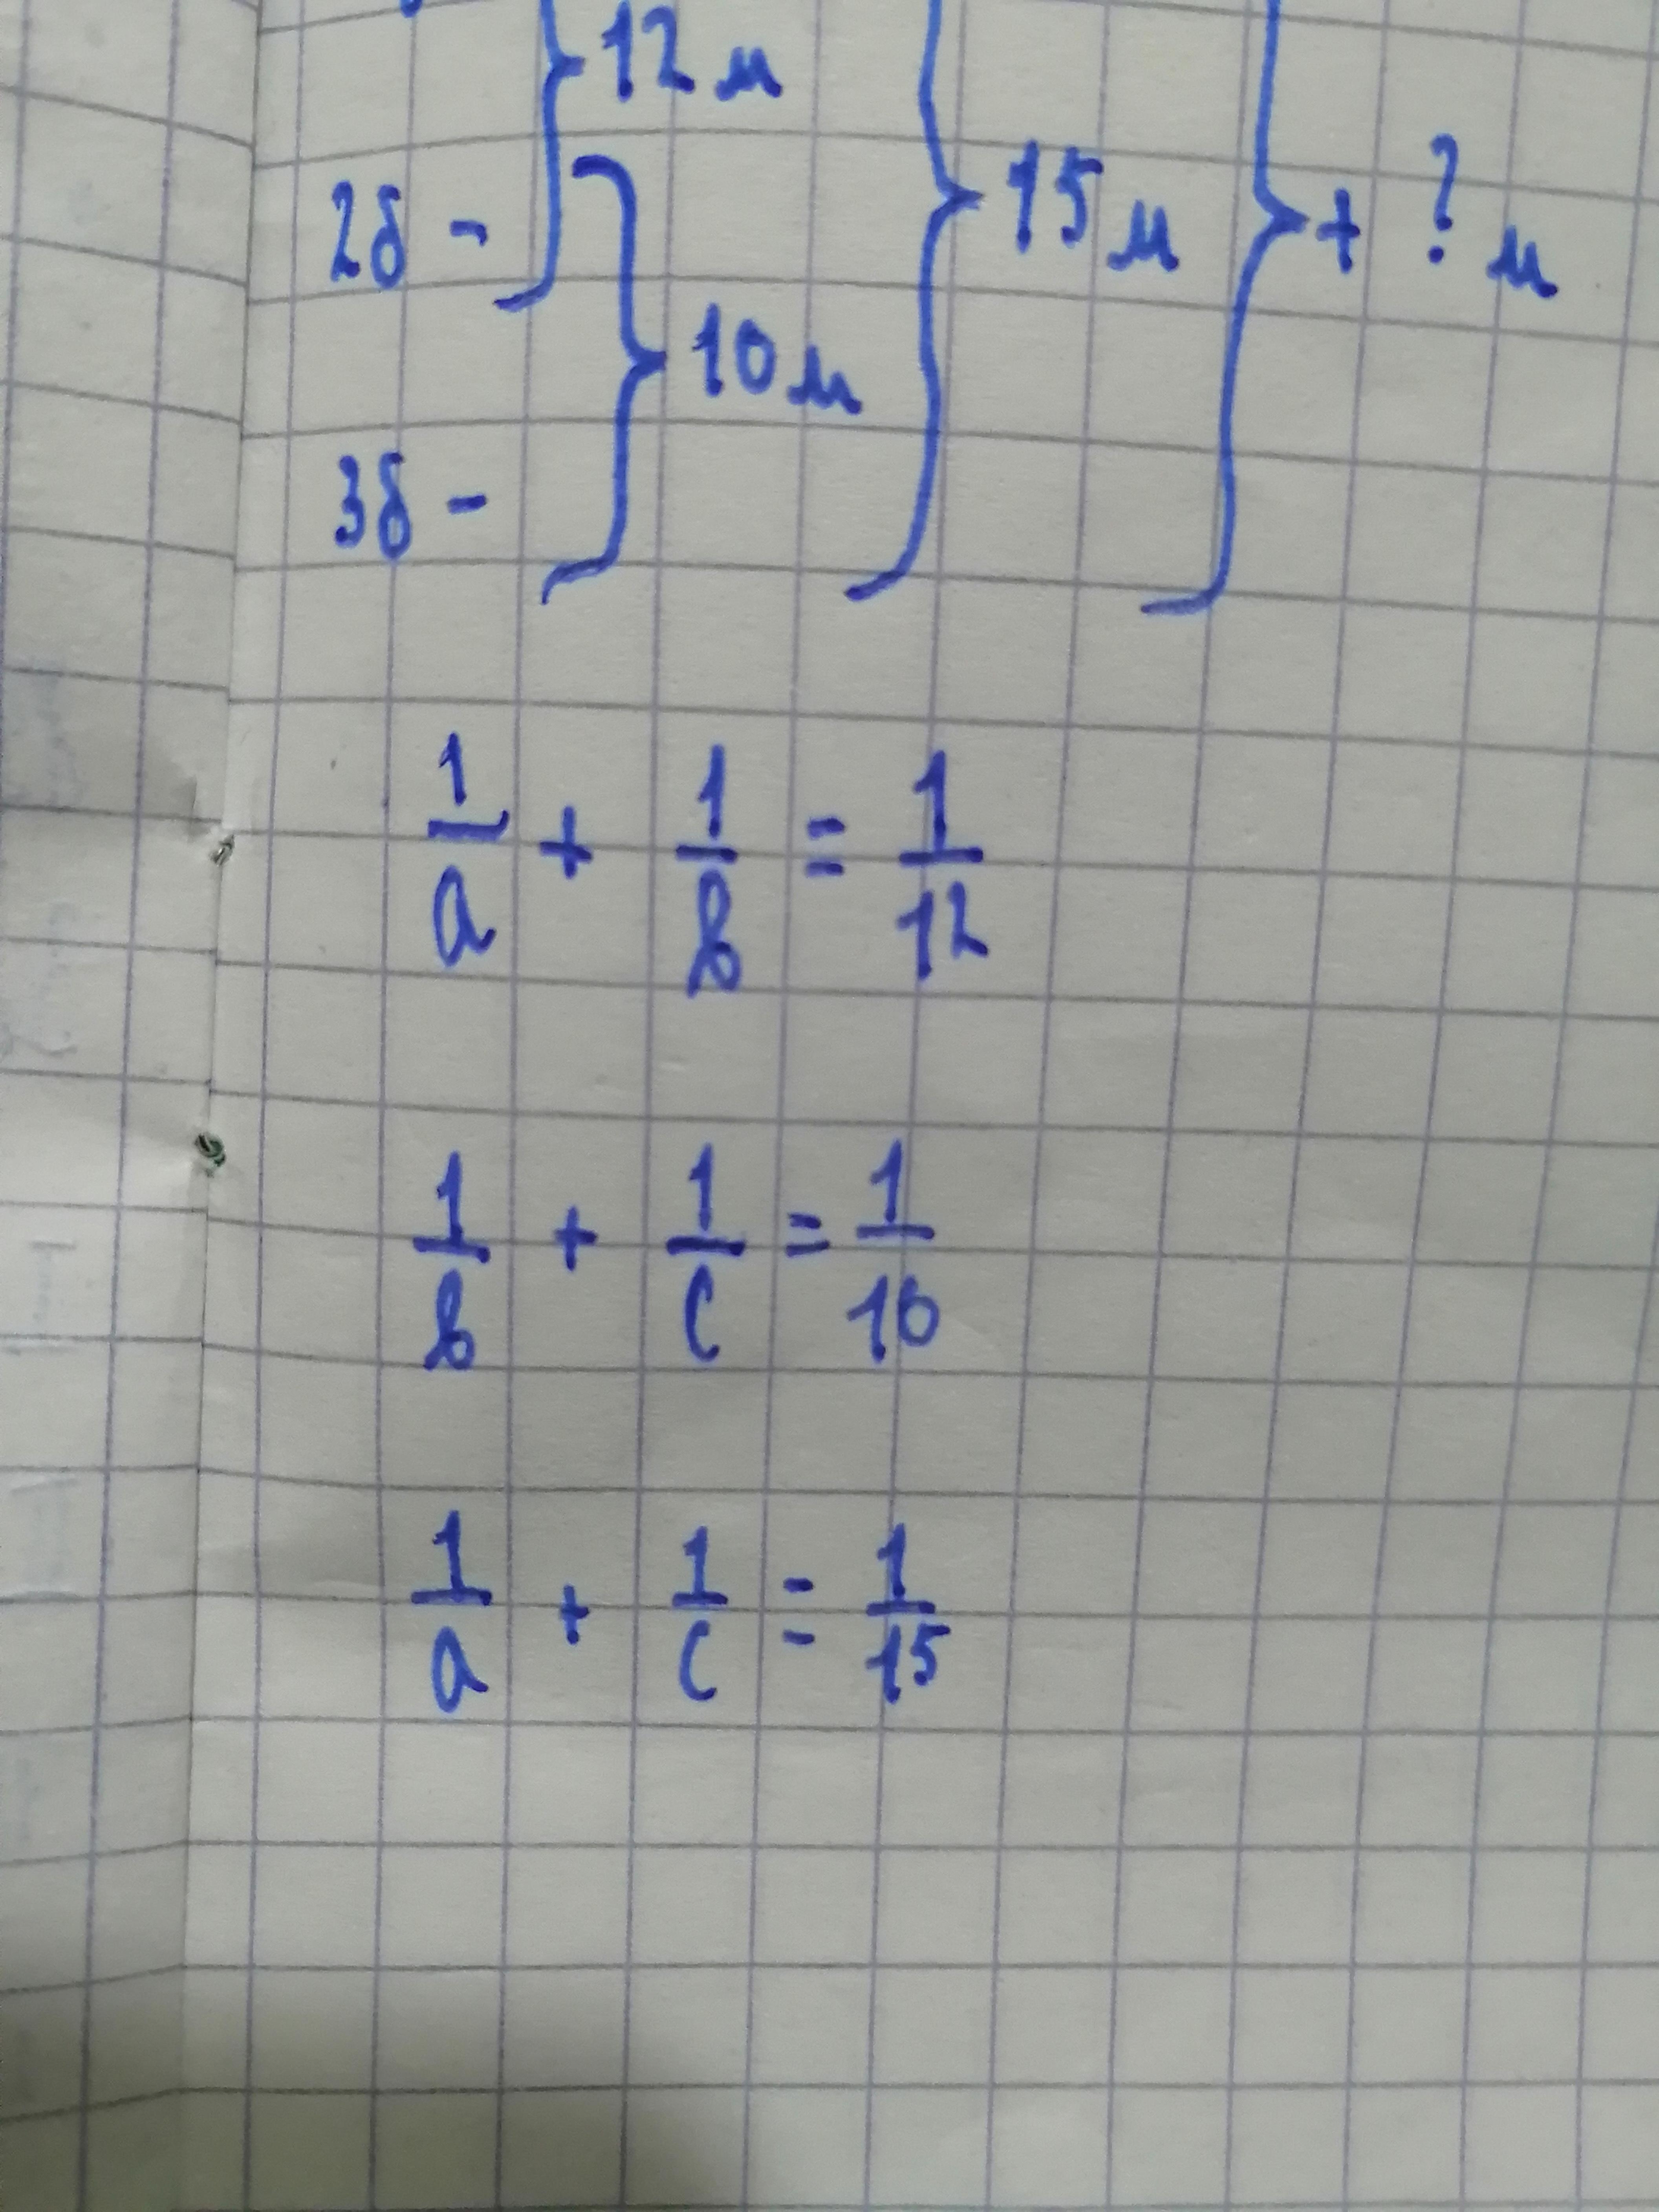 } 12 м
2б - } 15 м } + ? м
} 10 м
3б -
1/a + 1/в = 1/12
1/в + 1/c = 1/10
1/a + 1/c = 1/15